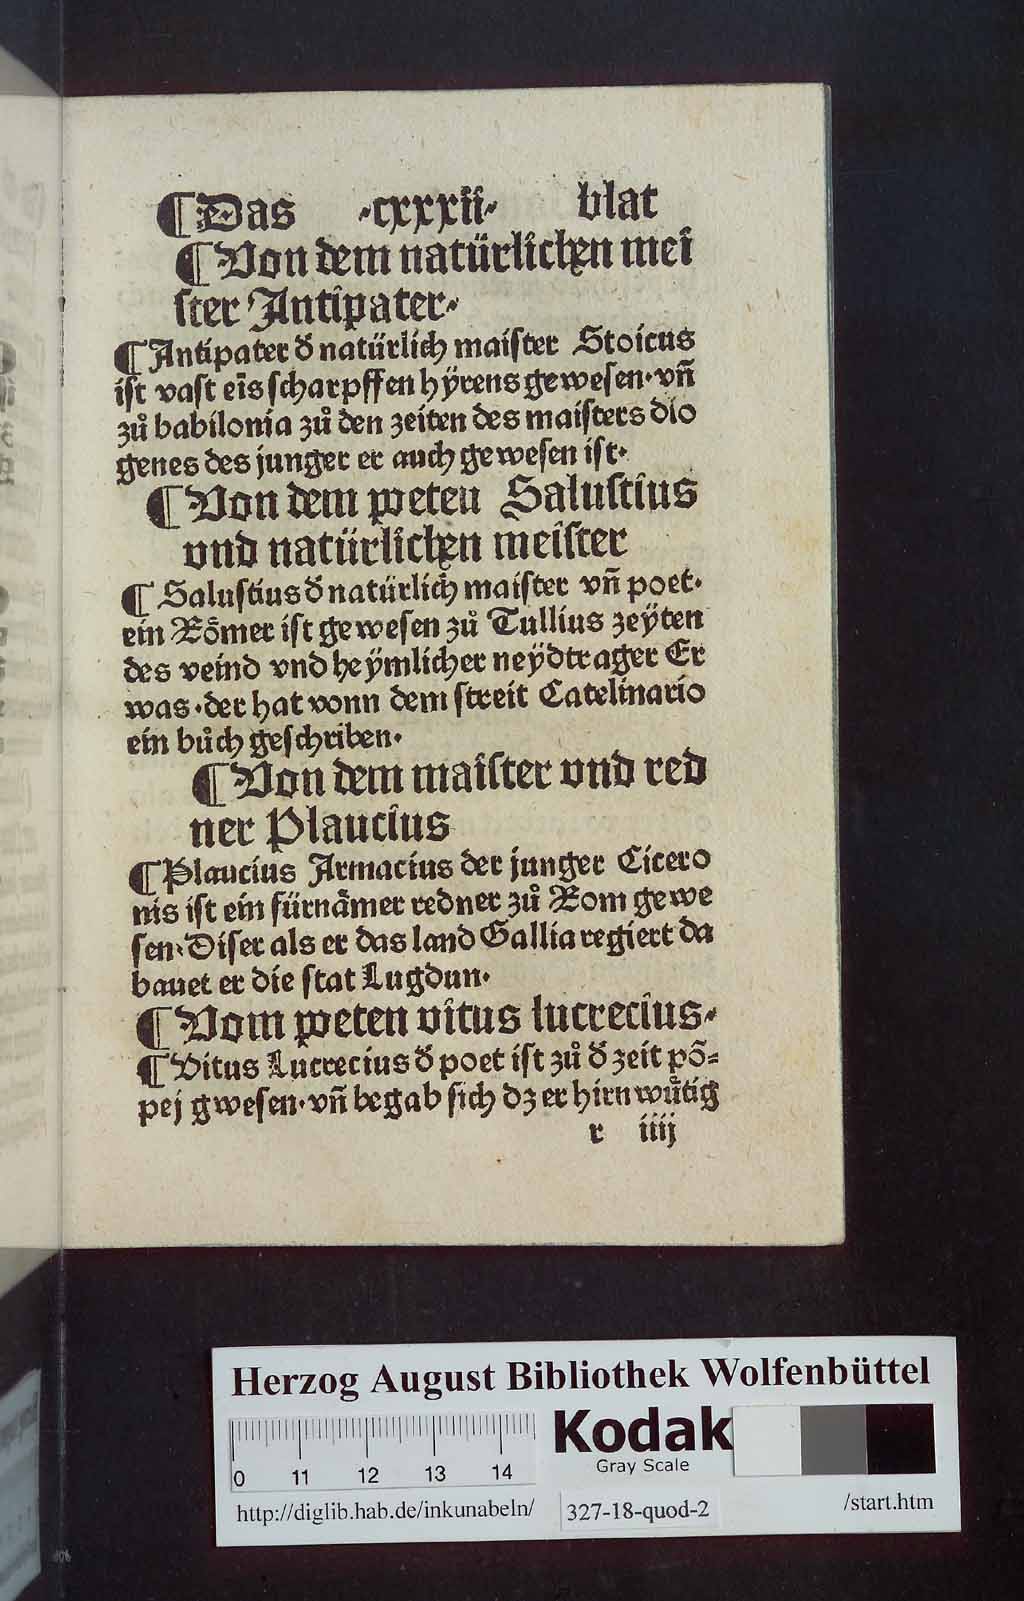 ¶ Das ·cxxxii· blat
¶ Von dem natürlichen mei
ster Antipater·
¶ Antipater d̕ natürlich maister Stoicus
ist vast eīs scharpffen hÿrens gewesen· vn̄
zů babilonia zů den zeiten des maisters dio
genes des junger er auch gewesen ist·
¶ Von dem poeteu Salustius
vnd natürlichen meister
¶ Salustius d̕ natürlich maister vn̄ poet·
ein Rȯ̈mer ist gewesen zů Tullius zeÿten
des veind vnd heÿmlicher neÿdtrager Er
was· der hat vonn dem streit Catelinario
ein bůch geschriben·
¶ Von dem maister vnd red
ner Plaucius
¶ Plaucius Armacius der junger Cicero
nis ist ein fürnämer redner zů Rom gewe
sen· Diser als er das land Gallia regiert da
bauet er die stat Lugdun·
¶ Vom poeten vitus lucrecius·
¶ Vitus Lucrecius d̕ poet ist zů d̕ zeit pō=
pej gwesen· vn̄ begab sich dz er hirn wůtig
r iiij
Herzog August Bibliothek Wolfenbüttel
Kodak
Gray Scale
0 11 12 13 14
http://diglib.hab.de/inkunabeln/ 327-18-quod-2 /start.htm